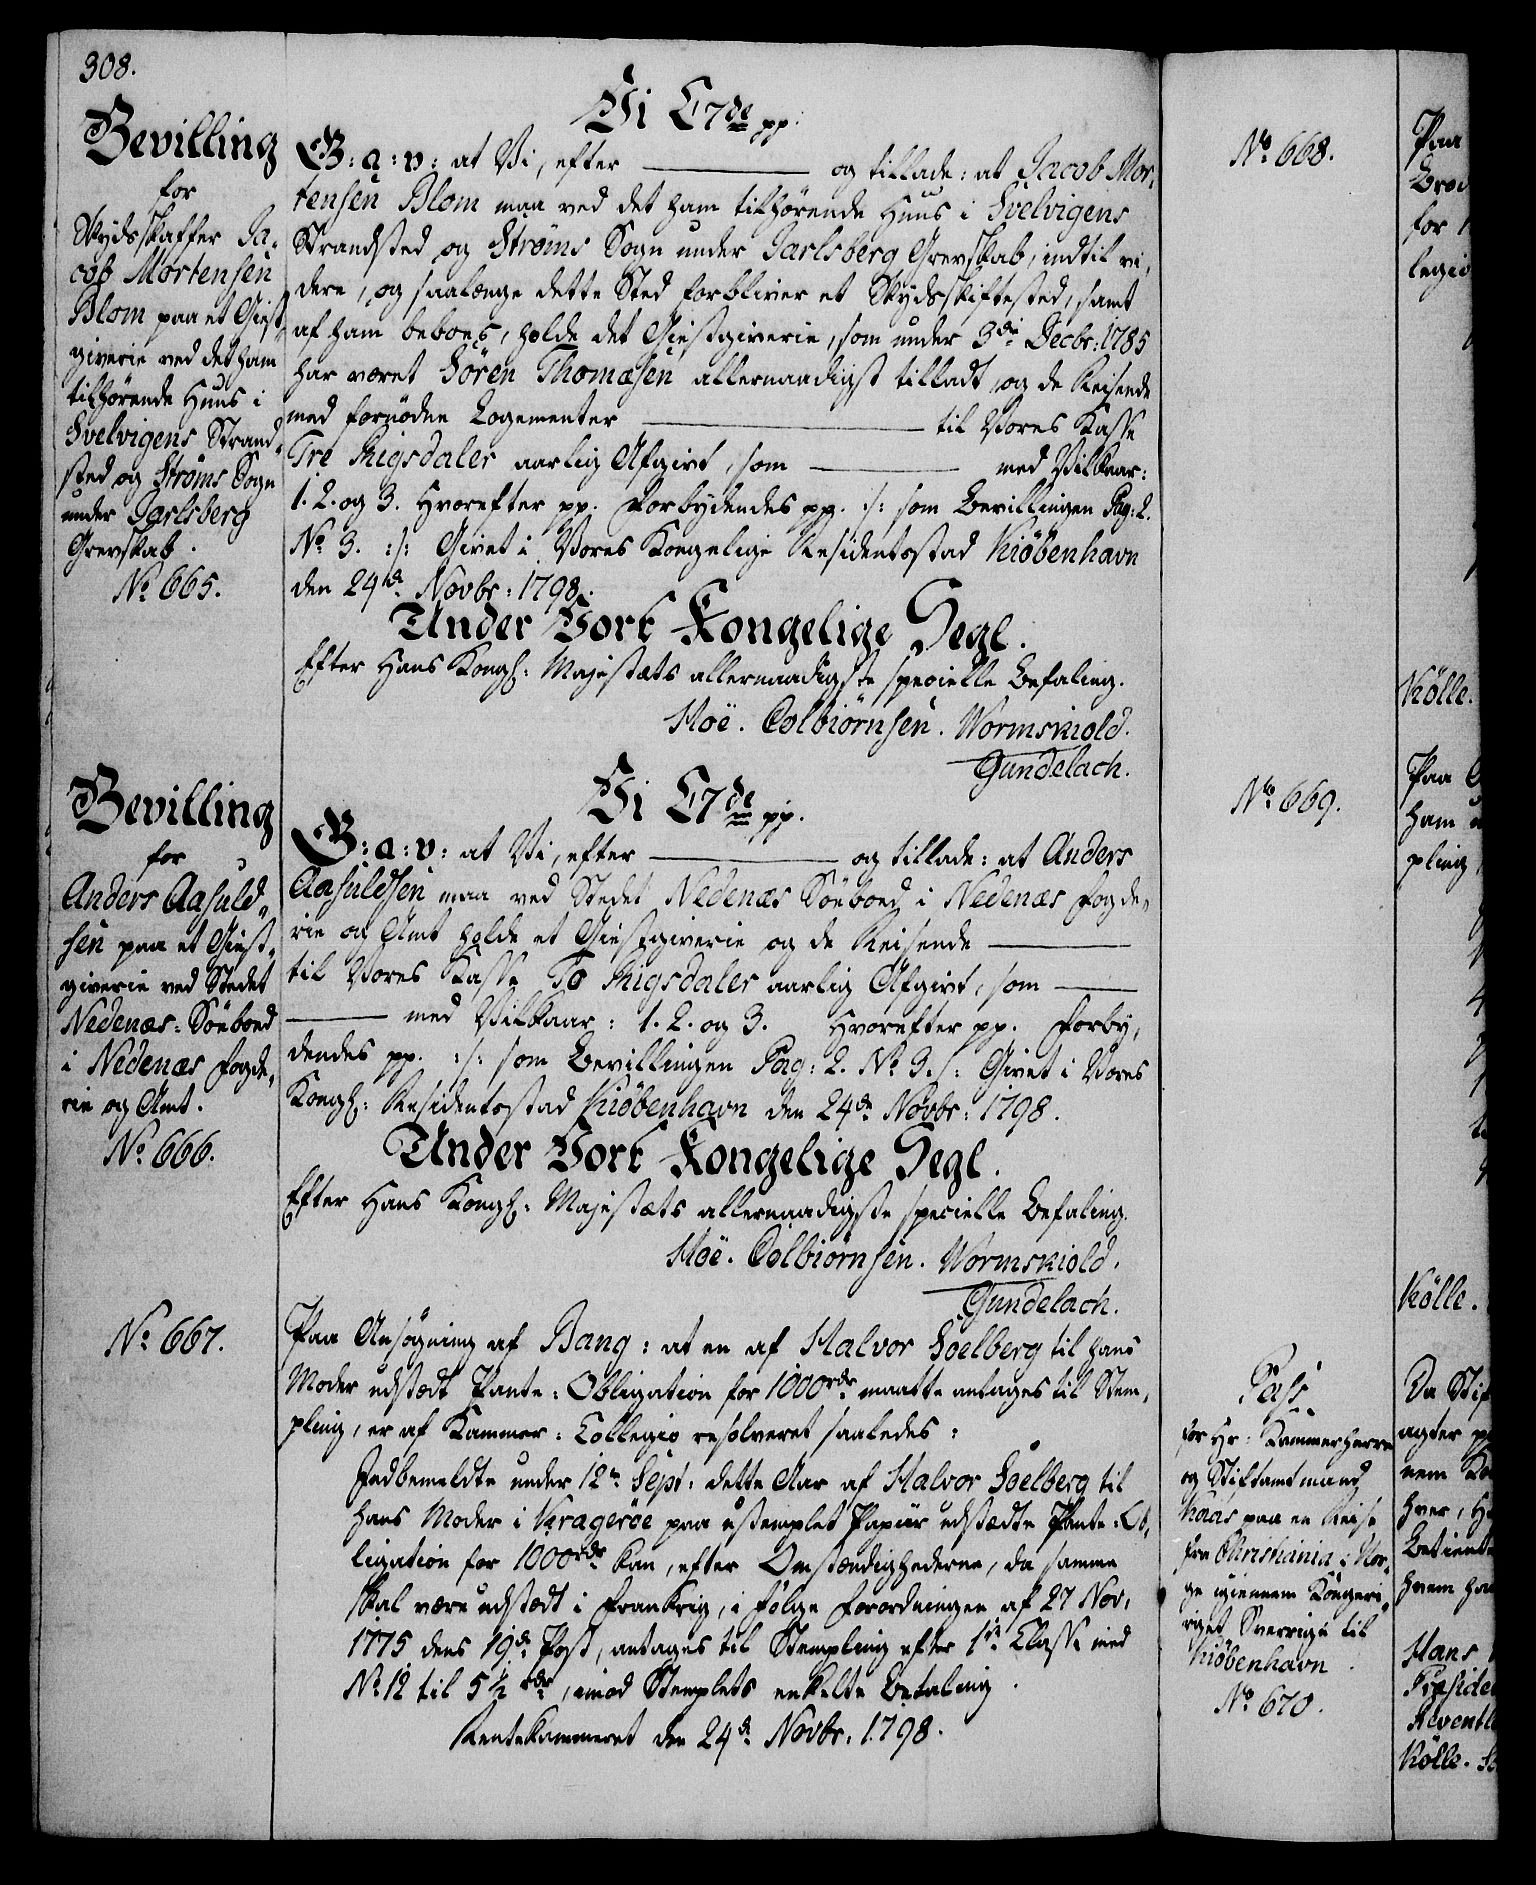 308.
Bevilling
for
Skydsskaffer Ja-
cob Mortensen
Blom paa et Giest-
giverie ved det ham
tilhørende Huus i
Svelvigens Strand-
sted og Strøms Sogn
under Jarlsberg
Grevskab.
No. 665.
Vi C7de pp.
G: a: v: at Vi, efter ——— og tillade: at Jacob Mor-
tensen Blom maa ved det ham tilhørende Huus i Svelvigens
Strandsted og Strøms Sogn under Jarlsberg Grevskab, indtil vi-
dere, og saalænge dette Sted forbliver et Skydsskiftested, samt
af ham beboes, holde det Giestgiverie, som under 3de Decbr: 1785
har været Sören Thomæsen allernaadigst tilladt, og de Reisende
med fornödne Logementer ——— til Vores Kasse
Tre Rigsdaler aarlig Afgivt, som ——— med Vilkaar:
1. 2. og 3. Hvorefter pp. Forbydendes pp. :/: som Bevillingen Pag: 2.
No. 3. :/: Givet i Vores Kongelige Residentsstad Kiöbenhavn
den 24de Novbr: 1798.
Under Vort Kongelige Segl.
Efter Hans Kongl: Majestæts allernaadigste specielle Befaling.
Hoë. Colbiörnsen. Wormskiold.
Gundelach.
Bevilling
for
Anders Aasuld-
sen paa et Giest-
giverie ved Stedet
Nedenæs: Söeboed
i Nedenæs Fogde-
rie og Amt.
No. 666.
Vi C7de pp.
G: a: v: at Vi, efter ——— og tillade: at Anders
Aasuldsen maa ved Stedet Nedenæs Söeboed i Nedenæs Fogde-
rie og Amt holde et Giestgiverie og de Reisende ———
til Vores Kasse To Rigsdaler aarlig Afgivt, som ———
——— med Vilkaar: 1. 2. og 3. Hvorefter pp. Forby-
dendes pp. :/: som Bevillingen Pag: 2. No. 3. /: Givet i Vores
Kongl: Residentsstad Kiöbenhavn den 24de Novbr: 1798.
Under Vort Kongelige Segl.
Efter Hans Kongl: Majestæts allernaadigste specielle Befaling.
Hoë. Colbiörnsen. Wormskiold.
Gundelach.
No. 667.
Paa Ansögning af Bang: at en af Halvor Soelberg til hans
Moder udstædt Pante-Obligation for 1000rdr maatte antages til Stem-
pling, er af Kammer-Collegio resolveret saaledes:
Indbemeldte under 12te Sept: dette Aar af Halvor Soelberg til
hans Moder i Krageröe paa ustemplet Papiir udstædte Pante-Ob-
ligation for 1000rdr kan, efter Omstændighederne, da samme
skal være udstædt i Frankrig, i følge Forordningen af 27 Nov.
1775 dens 19de Post, antages til Stempling efter 1ste Classe med
No. 12 til 5 1/2 rdr, imod Stemplets enkelte Betaling.
Rentekammeret den 24de Novbr. 1798.
No. 668.
No. 669.
Pass
for Hr: Kammerherre
og Stiftamtmand
Kaas paa en Reise
fra Christiania i Nor-
ge igiennem Kongeri-
riget Sverrige til
Kiöbenhavn.
No. 670.
Paa
for
legio
Kölle.
Paa
ham
pling
Kölle.
Da Stif
agter pp
nem Ko
hver, H
Betient
hvem ha
Hans
Præside
Reventl
Kölle.